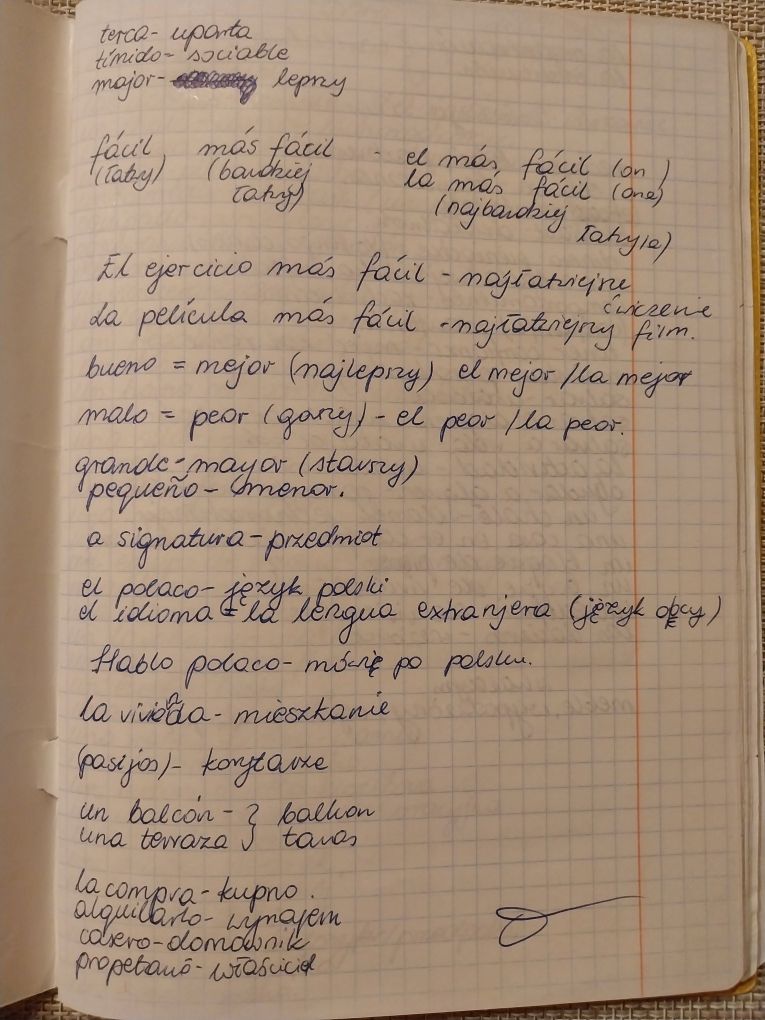 terca- uparta
tímido- sociable
major- lepszy
fácil más fácil - el más fácil (on)
(łatwy) (bardziej la más fácil (ona)
łatwy) (najbardziej
łatwy/a)
El ejercicio más fácil - najłatwiejsze
ćwiczenie
La película más fácil - najłatwiejszy film.
bueno = mejor (najlepszy) el mejor / la mejor
malo = peor (gorszy) - el peor / la peor.
grande - mayor (starszy)
pequeño - menor.
a signatura - przedmiot
el polaco - język polski
el idioma = la lengua extranjera (język obcy)
Hablo polaco - mówię po polsku.
la - mieszkanie
(pasijos) - korytarze
un balcón - } balkon
una terraza } taras
la compra - kupno.
alquilarlo - wynajem
casero - domownik
- właściciel